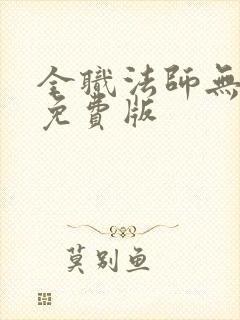 全職法師無
免費版
莫别鱼